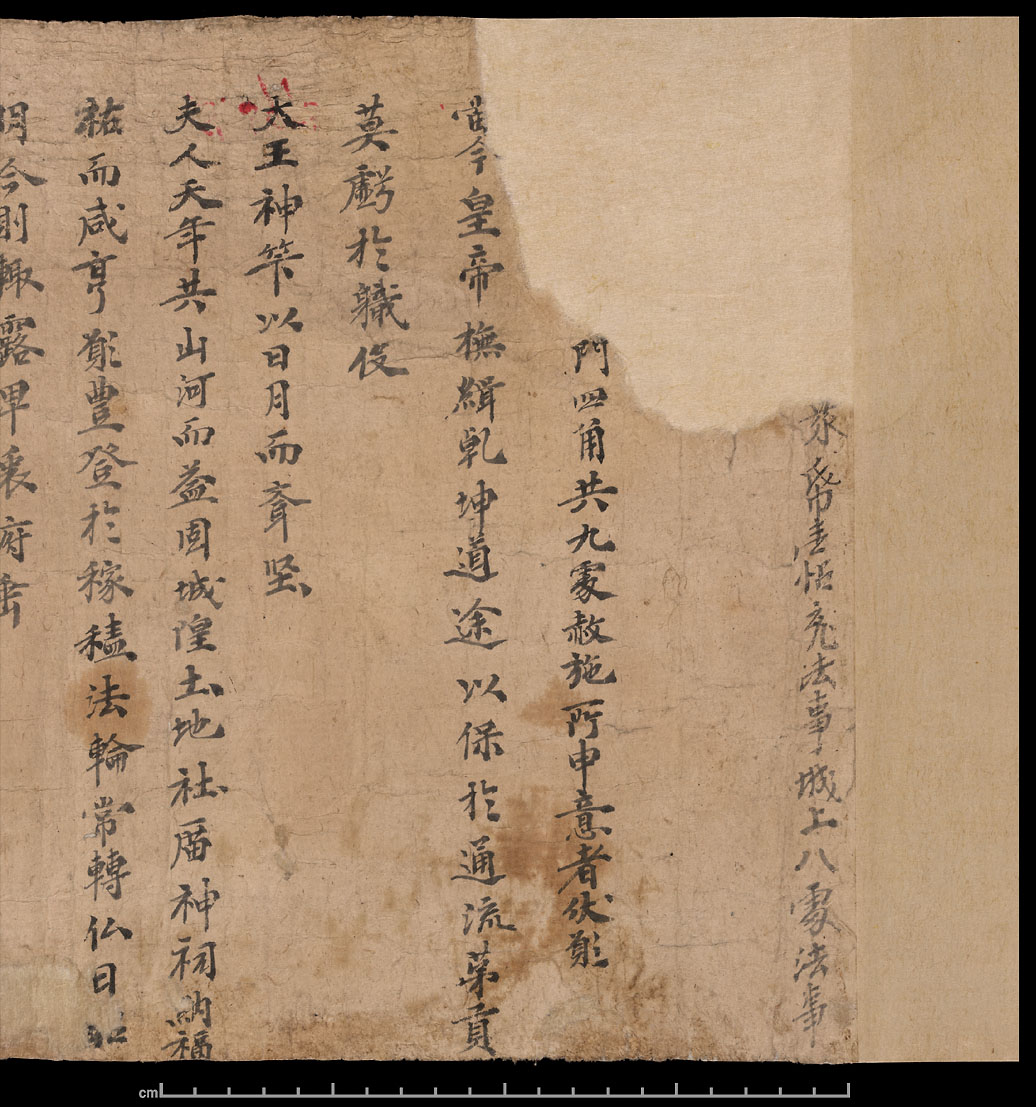 帋壹帖充法事城上八處法事
門四角共九處散施所申意者伏願
當今皇帝撫緝乾坤道途以保於通流苐貢
莫虧於軄伇
大王神筭以日月而齊堅
夫人天年共山河而益固城隍土地社庿神祠納福
祐而咸亨願豐登於稼穡法輪常轉仏日
明今則輙露卑衷府垂